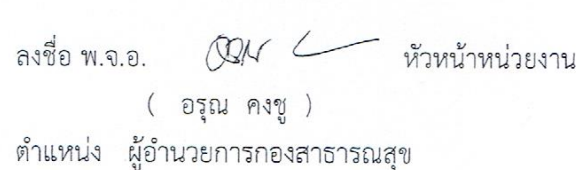 ลงชื่อ พ.จ.อ. หัวหน้าหน่วยงาน
( อรุณ คงชู )
ตำแหน่ง ผู้อำนวยการกองสาธารณสุข